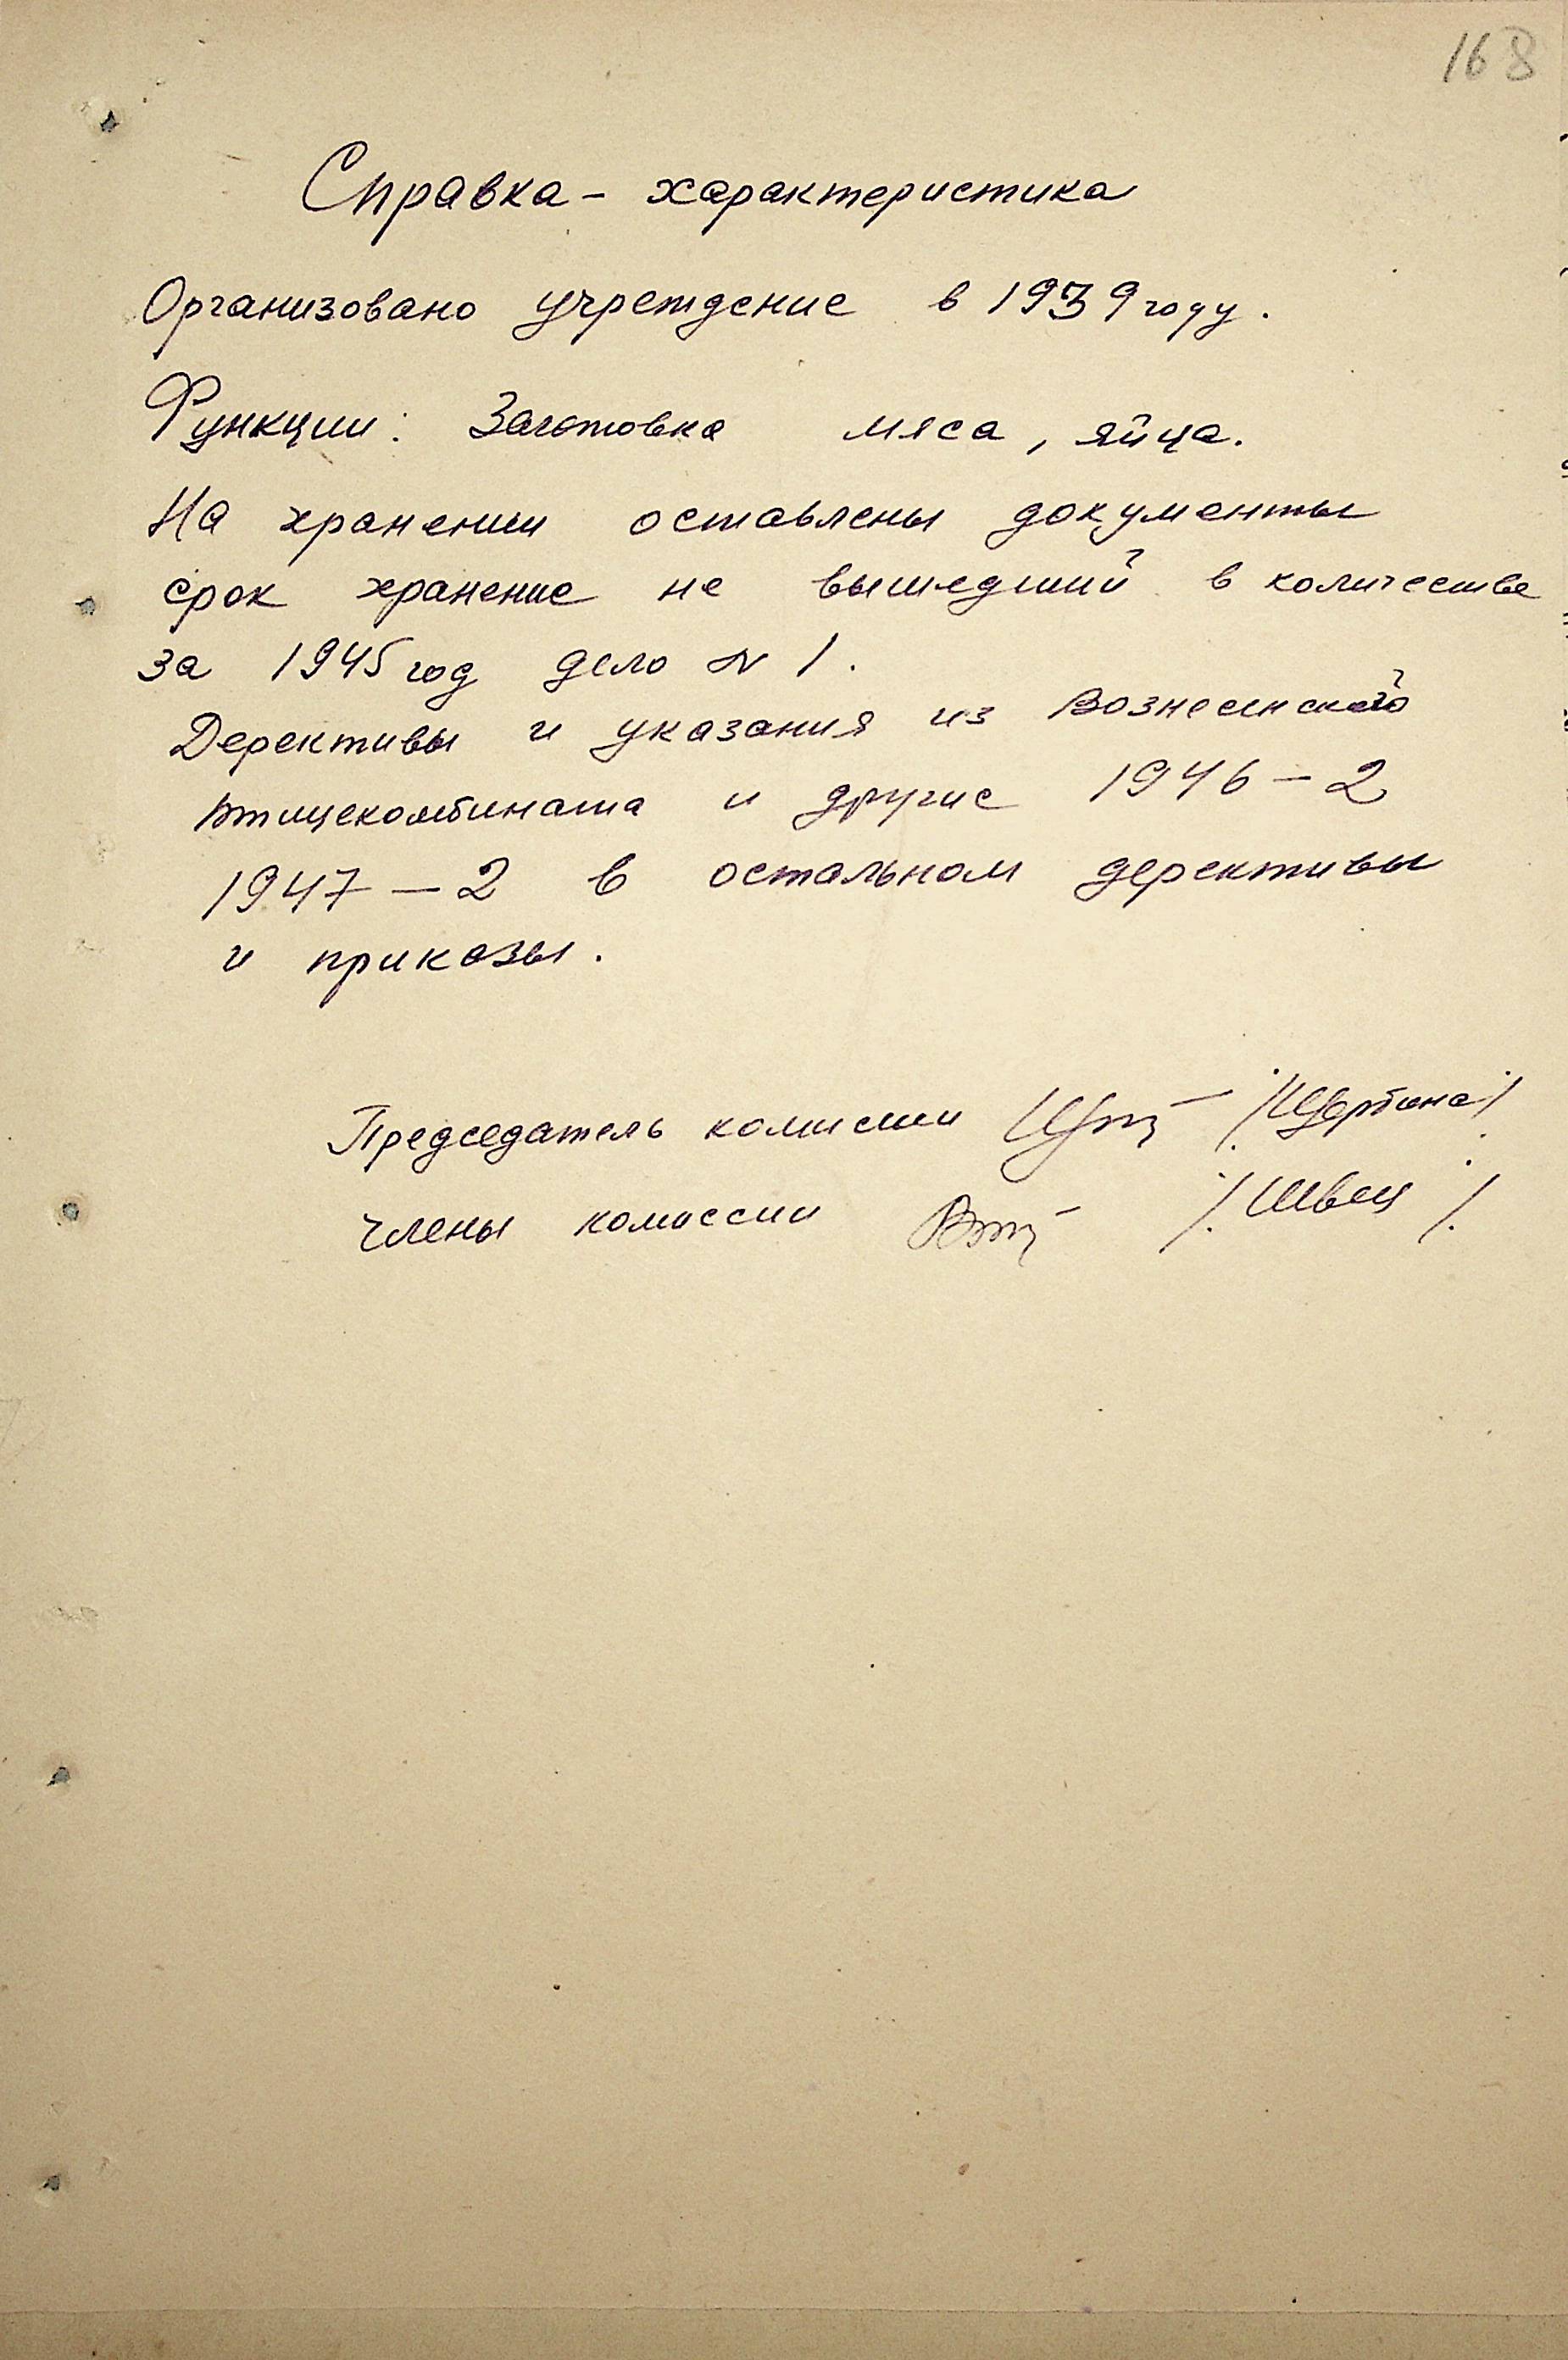 168
Справка - характеристика
Организовано учреждение в 1939 году.
Функции: Заготовка мяса, яйца.
На хранении оставлены документы
срок хранение не вышедший в количестве
за 1945 год дело № 1.
Дерективы и указания из Вознесенского
птицекомбината и другие 1946 - 2
1947 - 2 в остальном дерективы
и приказы.
Председатель комиссии /Щербина/
Члены комиссии /. Швец /.